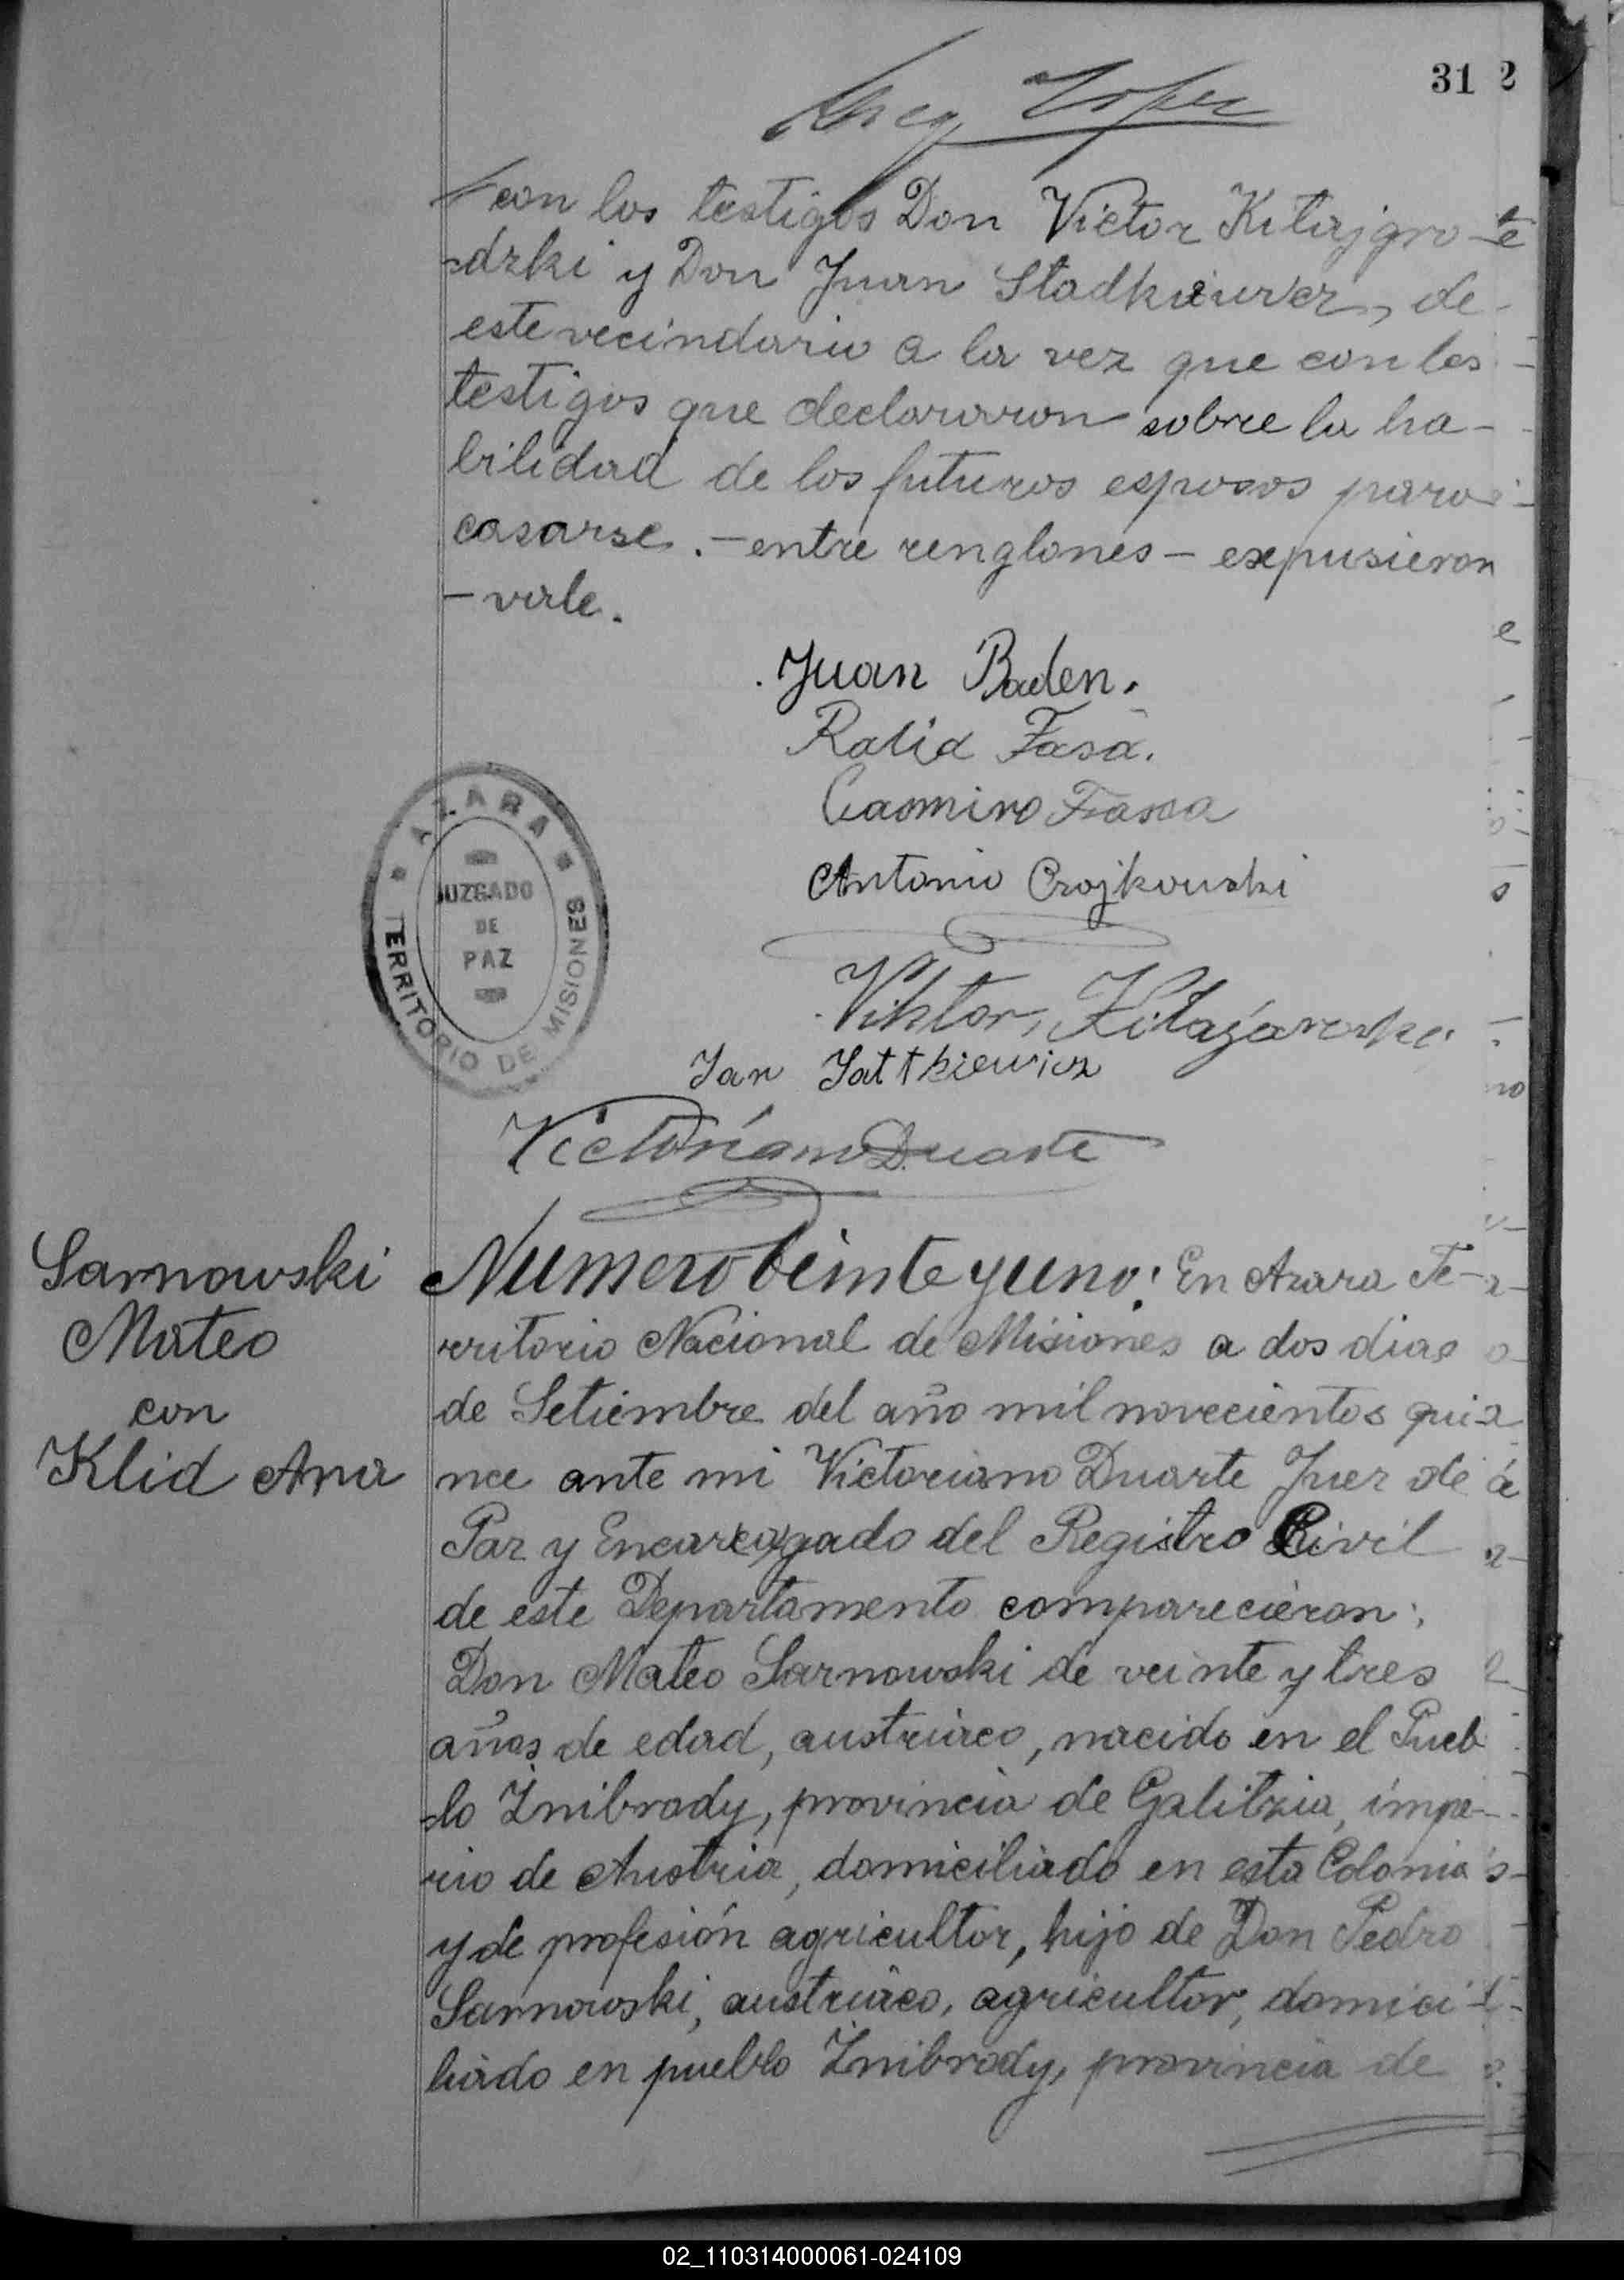 31 2
con los testigos Don Victor Kitajgro-
-dzki y Don Juan Stadkiewicz, de
este vecindario a la vez que con los
testigos que declararon sobre la ha-
bilidad de los futuros esposos para
casarse.-entre renglones-expusieron
-vale.
Juan Baden.
Ralia Fasa.
Casmiro Fassa
Antonio Crojkowski
AZARA
JUZGADO
DE
PAZ
TERRITORIO DE MISIONES
Viktor
Jan Sattkiewicz
Victoriano Duarte
Sarnowski
Mateo
con
Klid Ana
Numero beinte y uno: En Azara Te-
rritorio Nacional de Misiones a dos dias
de Setiembre del año mil novecientos qui-
nce ante mi Victoriano Duarte Juez de
Paz y Encargado del Registro Civil
de este Departamento comparecieron:
Don Mateo Sarnowski de veinte y tres
años de edad, austriaco, nacido en el Pueb
-lo Znibrody, provincia de Galitzia, impe-
rio de Austria, domiciliado en esta Colonia
y de profesión agricultor, hijo de Don Pedro
Sarnowski, austriaco, agricultor, domici-
liado en pueblo Znibrody, provincia de
02_110314000061-024109